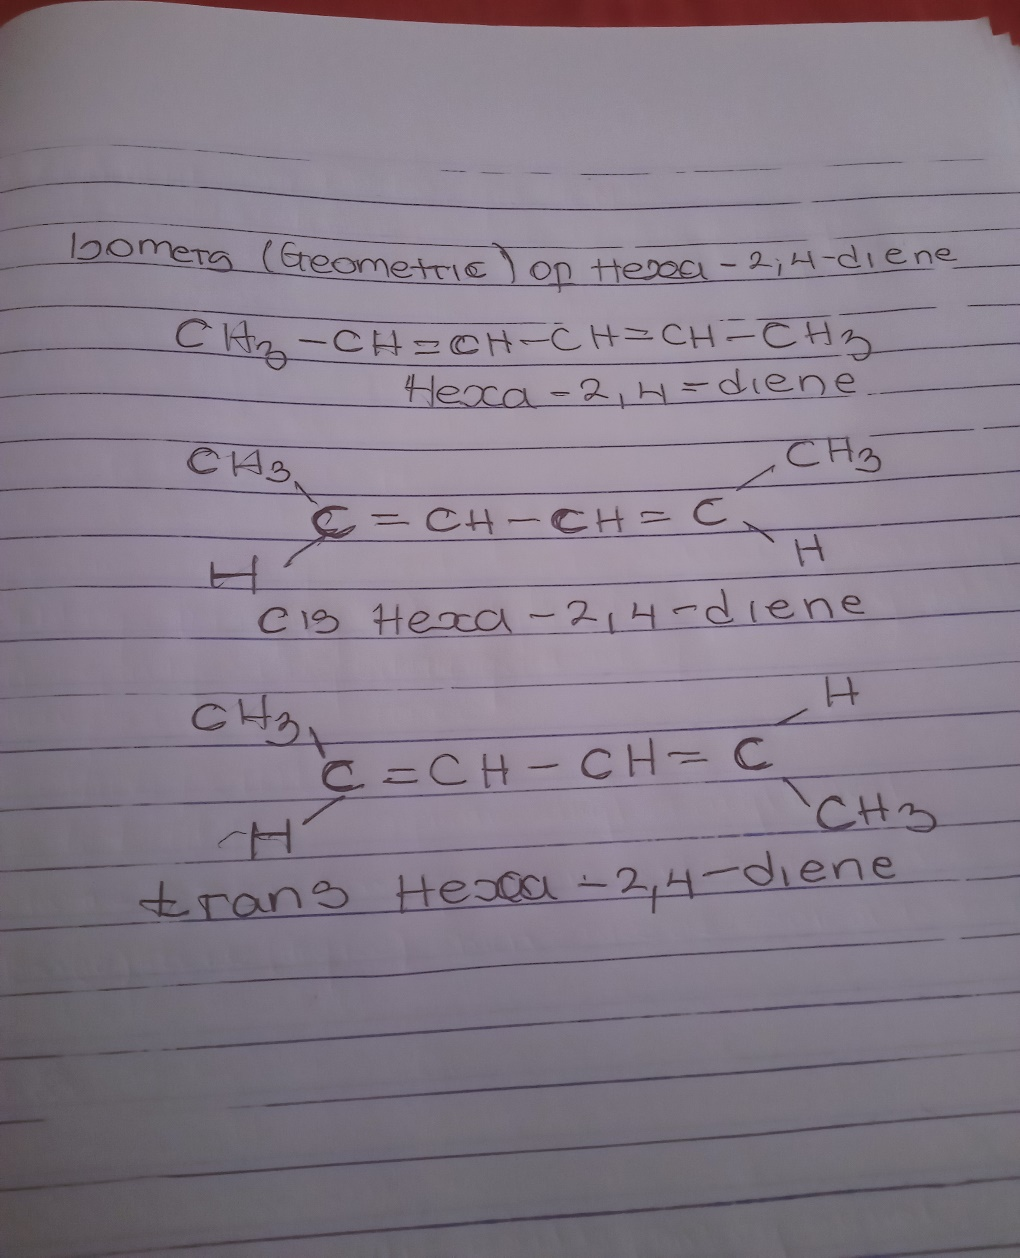 Isomers (Geometric) of Hexa-2,4-diene
CH3-CH=CH-CH=CH-CH3
Hexa-2,4-diene
CH3 CH3
C=CH-CH=C
H H
cis Hexa-2,4-diene
CH3 H
C=CH-CH=C
H CH3
trans Hexa-2,4-diene